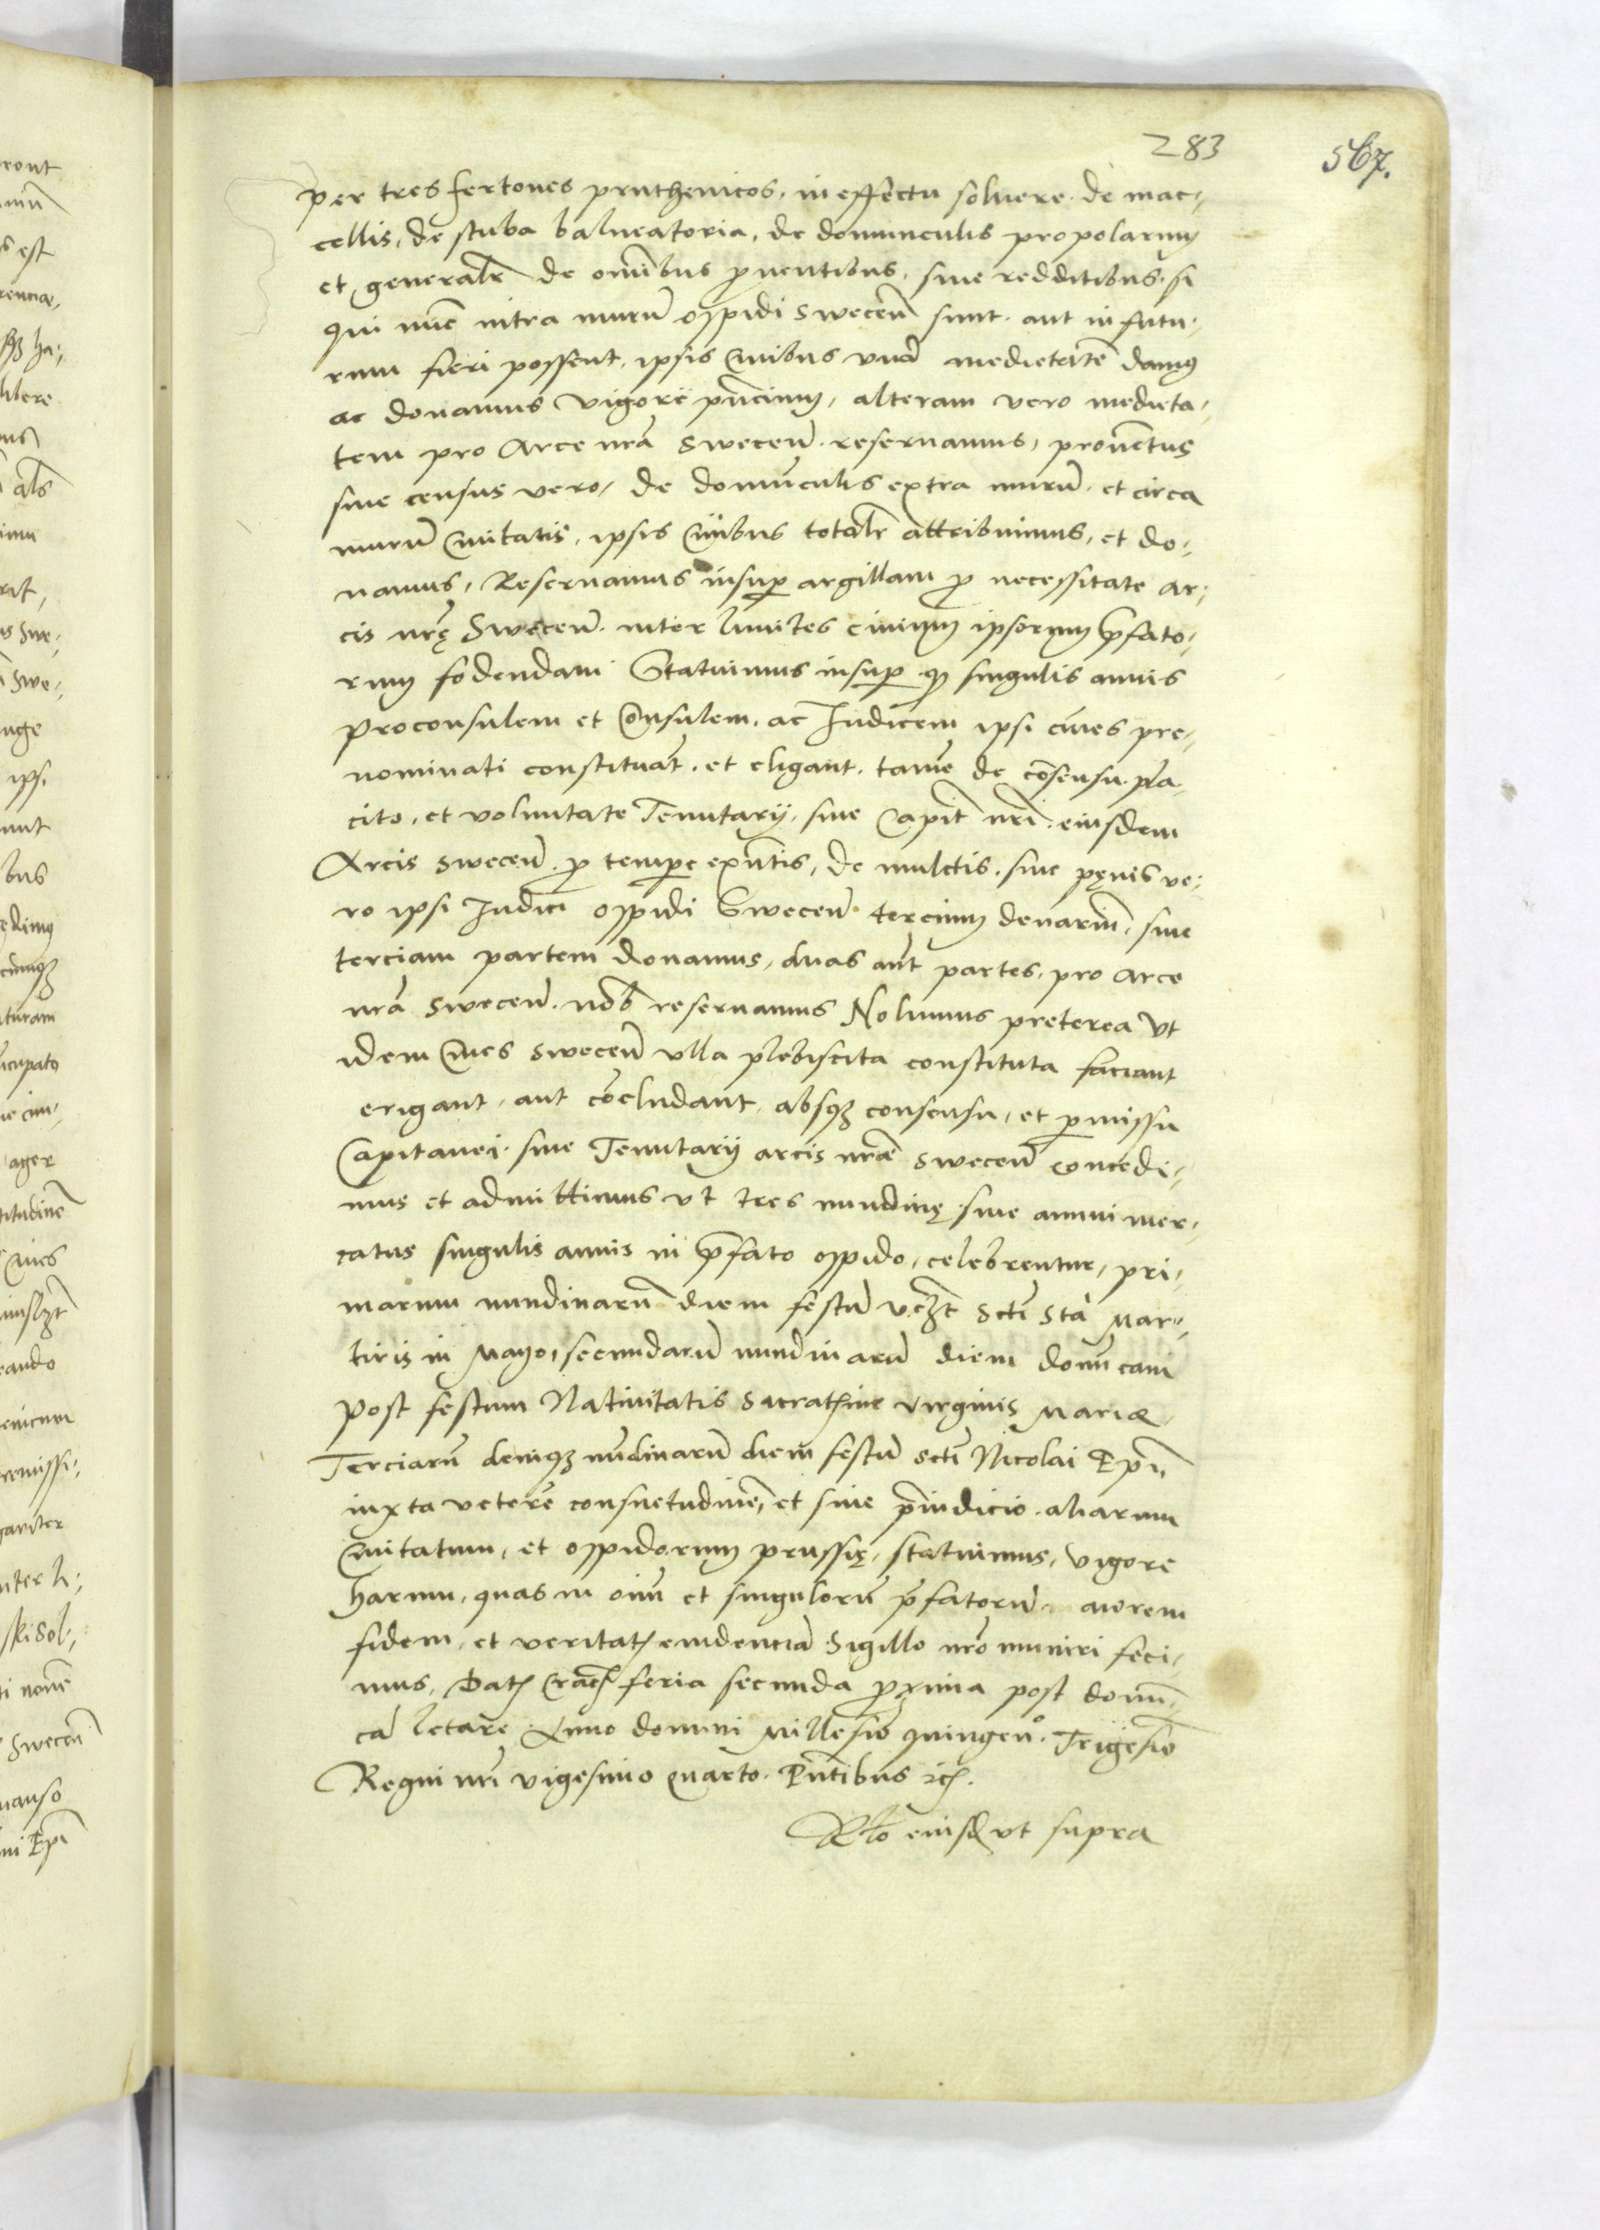 283
567.
per tres fertones pruthenicos. in effectu soluere. de mac-
cellis, de stuba balneatoria, de domunculis propolarum
et generalr de omibus puentibus, siue redditibus. si
qui nuc intra muru oppidi Swecen sunt. aut in futu-
rum fieri possent. ipsis ciuibus vna medietate damus
ac donamus vigore pncium, alteram vero medieta-
tem pro Arce nra Swecen. reseruamus, prouetus
siue census vero, de domuculis extra muru. et circa
muru ciuitatis, ipsis ciuibus totalr attribuimus, et do-
namus, Reseruamus insup argillam p necessitate ar-
cis nrę Swecen. inter limites ciuium ipsorum pfato-
rum fodendam Statuimus insup q singulis annis
proconsulem et consulem, ac Iudicem ipsi ciues pre-
nominati constituat. et eligant. tame de cosensu. pla-
cito, et voluntate Tenutarij. siue Capit nri. eiusdem
Arcis Swecen. p tempe exntis, de mulctis. siue pęnis ve-
ro ipsi Iudici oppidi Swecen. tercium denarium, siue
terciam partem donamus, duas aut partes, pro arce
nra Swecen. nob reseruamus Nolumus preterea vt
idem ciues Swecen vlla plebiscita constituta faciant
erigant, aut cocludant, absq consensu, et pmissu
Capitanei. siue Tenutarij arcis nrae Swecen concedi-
mus et admittimus vt tres nundinę. siue annui mer-
catus singulis annis in pfato oppido, celebrentur, pri-
marum nundinaru diem festu vczt scti Sta Mar-
tiris in Mayo, secundaru nundinaru diem domicam
post festum Natiuitatis sacratissime virginis Mariae
Terciaru deniq nudinaru diem festu scti Nicolai Epi,
iuxta vetere consuetudine, et sine piudicio. aliarum
ciuitatum, et oppidorum prussię, statuimus, vigore
harum, quas in oim et singuloru pfatoru maiorem
fidem, et veritatis euidencia Sigillo nro muniri feci-
mus, Dat Crac feria secunda pxima post domi-
ca letare Anno domini Millesio quingeno. Trigesio
Regni nri vigesimo quarto. Pntibus etc.
Rlo eiusd vt supra